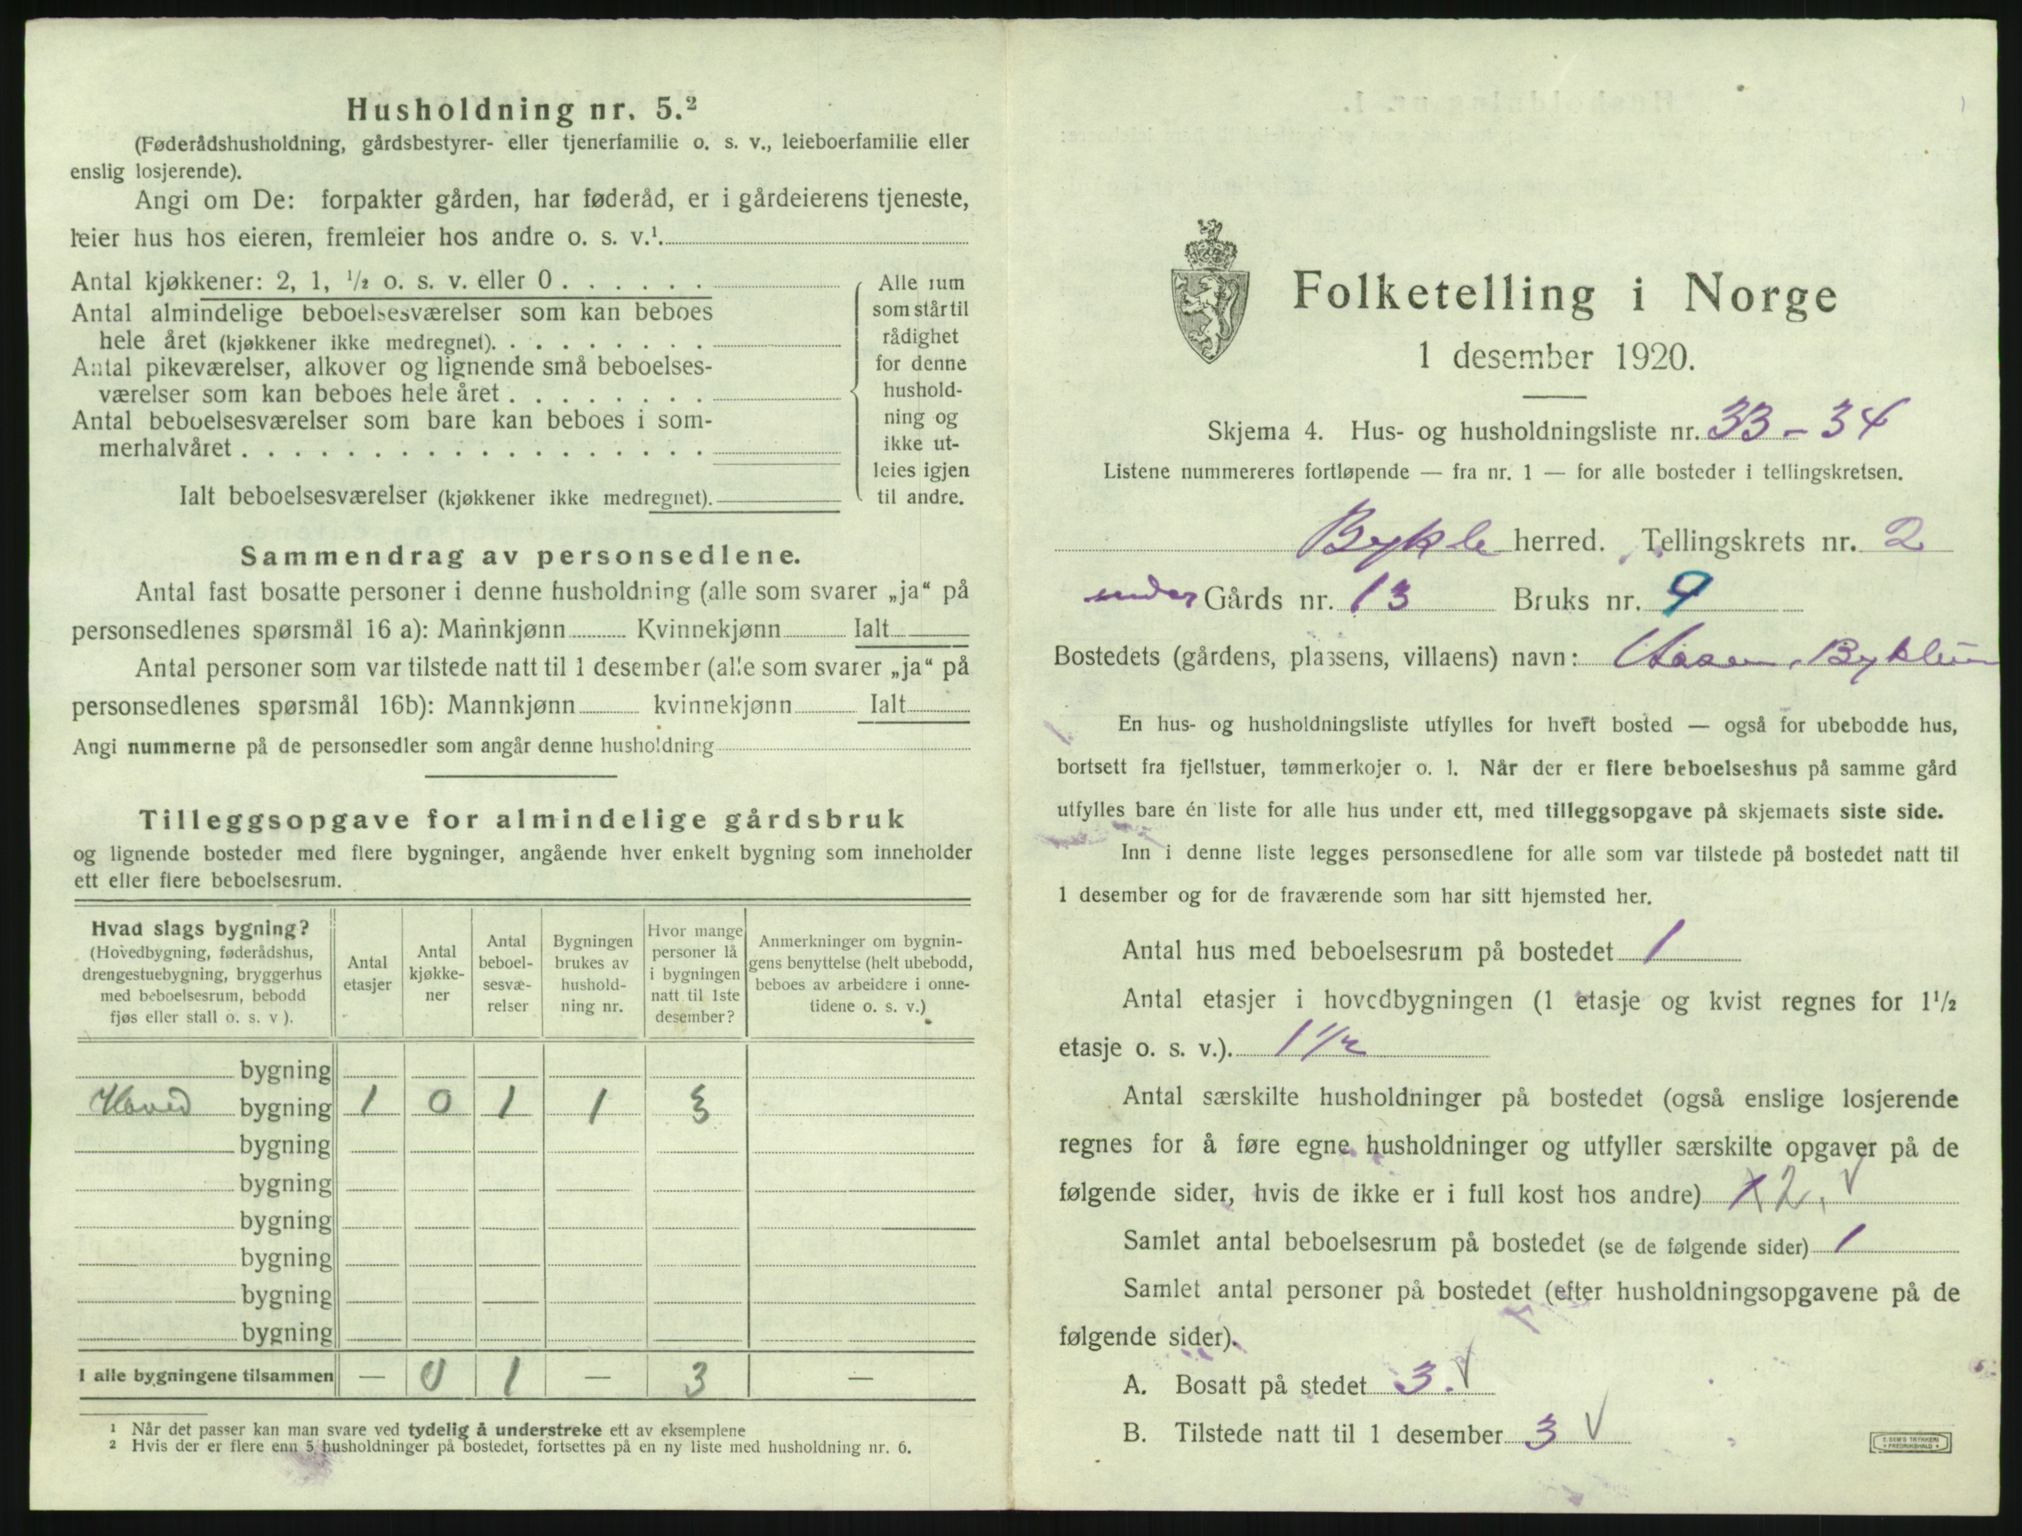 Husholdning nr. 5.²
(Føderådshusholdning, gårdsbestyrer- eller tjenerfamilie o. s. v., leieboerfamilie eller
enslig losjerende).
Angi om De: forpakter gården, har føderåd, er i gårdeierens tjeneste,
leier hus hos eieren, fremleier hos andre o. s. v.¹.
Antal kjøkkener: 2, 1, ½ o. s. v. eller 0
Antal almindelige beboelsesværelser som kan beboes
hele året (kjøkkener ikke medregnet).
Antal pikeværelser, alkover og lignende små beboelses-
værelser som kan beboes hele året
Antal beboelsesværelser som bare kan beboes i som-
merhalvåret
Ialt beboelsesværelser (kjøkkener ikke medregnet).
Alle rum
som står til
rådighet
for denne
hushold-
ning og
ikke ut-
leies igjen
til andre.
Sammendrag av personsedlene.
Antal fast bosatte personer i denne husholdning (alle som svarer „ja“ på
personsedlenes spørsmål 16 a): Mannkjønn Kvinnekjønn Ialt
Antal personer som var tilstede natt til 1 desember (alle som svarer „ja“ på
personsedlenes spørsmål 16b): Mannkjønn kvinnekjønn Ialt
Angi nummerne på de personsedler som angår denne husholdning
Tilleggsopgave for almindelige gårdsbruk
og lignende bosteder med flere bygninger, angående hver enkelt bygning som inneholder
ett eller flere beboelsesrum.
Hvad slags bygning?
(Hovedbygning, føderådshus,
drengestuebygning, bryggerhus
med beboelsesrum, bebodd
fjøs eller stall o. s. v ).
Antal
etasjer
Antal
kjøkke-
ner
Antal
beboel-
sesvæ-
relser
Bygningen
brukes av
hushold-
ning nr.
Hvor mange
personer lå
i bygningen
natt til 1ste
desember?
Anmerkninger om bygnin-
gens benyttelse (helt ubebodd,
beboes av arbeidere i onne-
tidene o. s. v.)
bygning
Hoved bygning 1 0 1 1 3
bygning
bygning
bygning
bygning
bygning
bygning
I alle bygningene tilsammen — 0 1 — 3 —
¹ Når det passer kan man svare ved tydelig å understreke ett av eksemplene
² Hvis der er flere enn 5 husholdninger på bostedet, fortsettes på en ny liste med husholdning nr. 6.
Folketelling i Norge
1 desember 1920.
Skjema 4. Hus- og husholdningsliste nr. 33 - 34
Listene nummereres fortløpende — fra nr. 1 — for alle bosteder i tellingskretsen.
Bykle herred. Tellingskrets nr. 2
under Gårds nr. 13 Bruks nr. 9
Bostedets (gårdens, plassens, villaens) navn:
En hus- og husholdningsliste utfylles for hvert bosted — også for ubebodde hus,
bortsett fra fjellstuer, tømmerkojer o. l. Når der er flere beboelseshus på samme gård
utfylles bare én liste for alle hus under ett, med tilleggsopgave på skjemaets siste side.
Inn i denne liste legges personsedlene for alle som var tilstede på bostedet natt til
1 desember og for de fraværende som har sitt hjemsted her.
Antal hus med beboelsesrum på bostedet 1
Antal etasjer i hovedbygningen (1 etasje og kvist regnes for 1½
etasje o. s. v.). 1 1/2
Antal særskilte husholdninger på bostedet (også enslige losjerende
regnes for å føre egne husholdninger og utfyller særskilte opgaver på de
følgende sider, hvis de ikke er i full kost hos andre) 2.
Samlet antal beboelsesrum på bostedet (se de følgende sider) 1
Samlet antal personer på bostedet (efter husholdningsopgavene på de
følgende sider).
A. Bosatt på stedet 3.
B. Tilstede natt til 1 desember 3